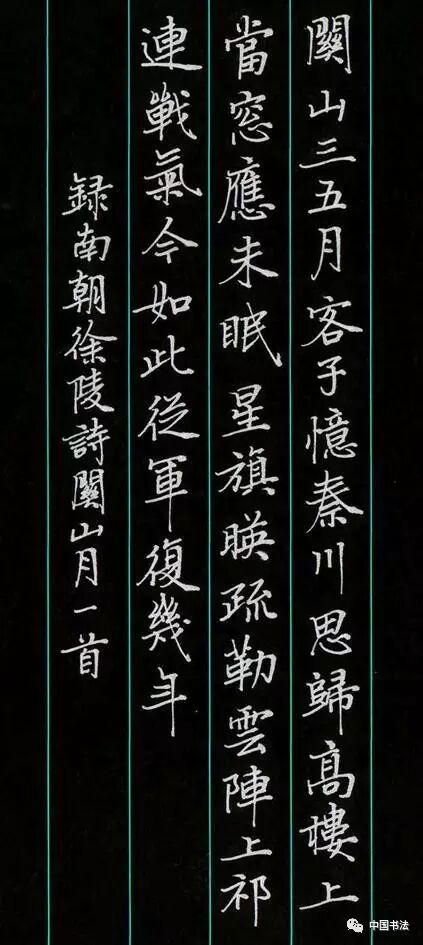 關山三五月客子憶秦川思歸高樓上
當窓應未眠星旗暎疏勒雲陣上祁
連戰氣今如此從軍復幾年
録南朝徐陵詩關山月一首
中国书法